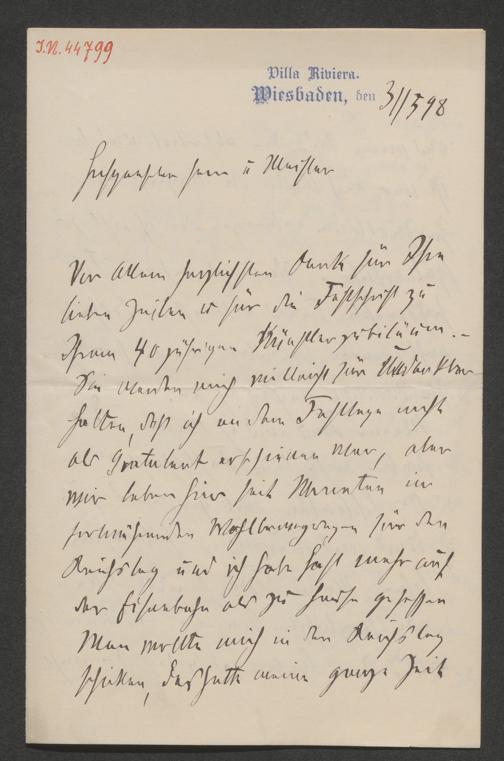 J.N. 44799
Villa Riviera.
Wiesbaden, den 31/5 98
Hochgeehrter Herr u Meister
Vor Allem herzlichsten Dank für Ihre
lieben Zeilen u für die Festschrift zu
Ihrem 40 jährigen Künstlerjubiläum. –
Sie werden mich vielleicht für undankbar
halten, daß ich an dem Festtage nicht
als Gratulant erschienen war, aber
wir leben hier seit Monaten in
fortwährenden Wahlbewegungen für den
Reichstag und ich habe fast mehr auf
der Eisenbahn als zu Hause gesessen
Man wollte mich in den Reichstag
schicken, das hätte meine ganze Zeit